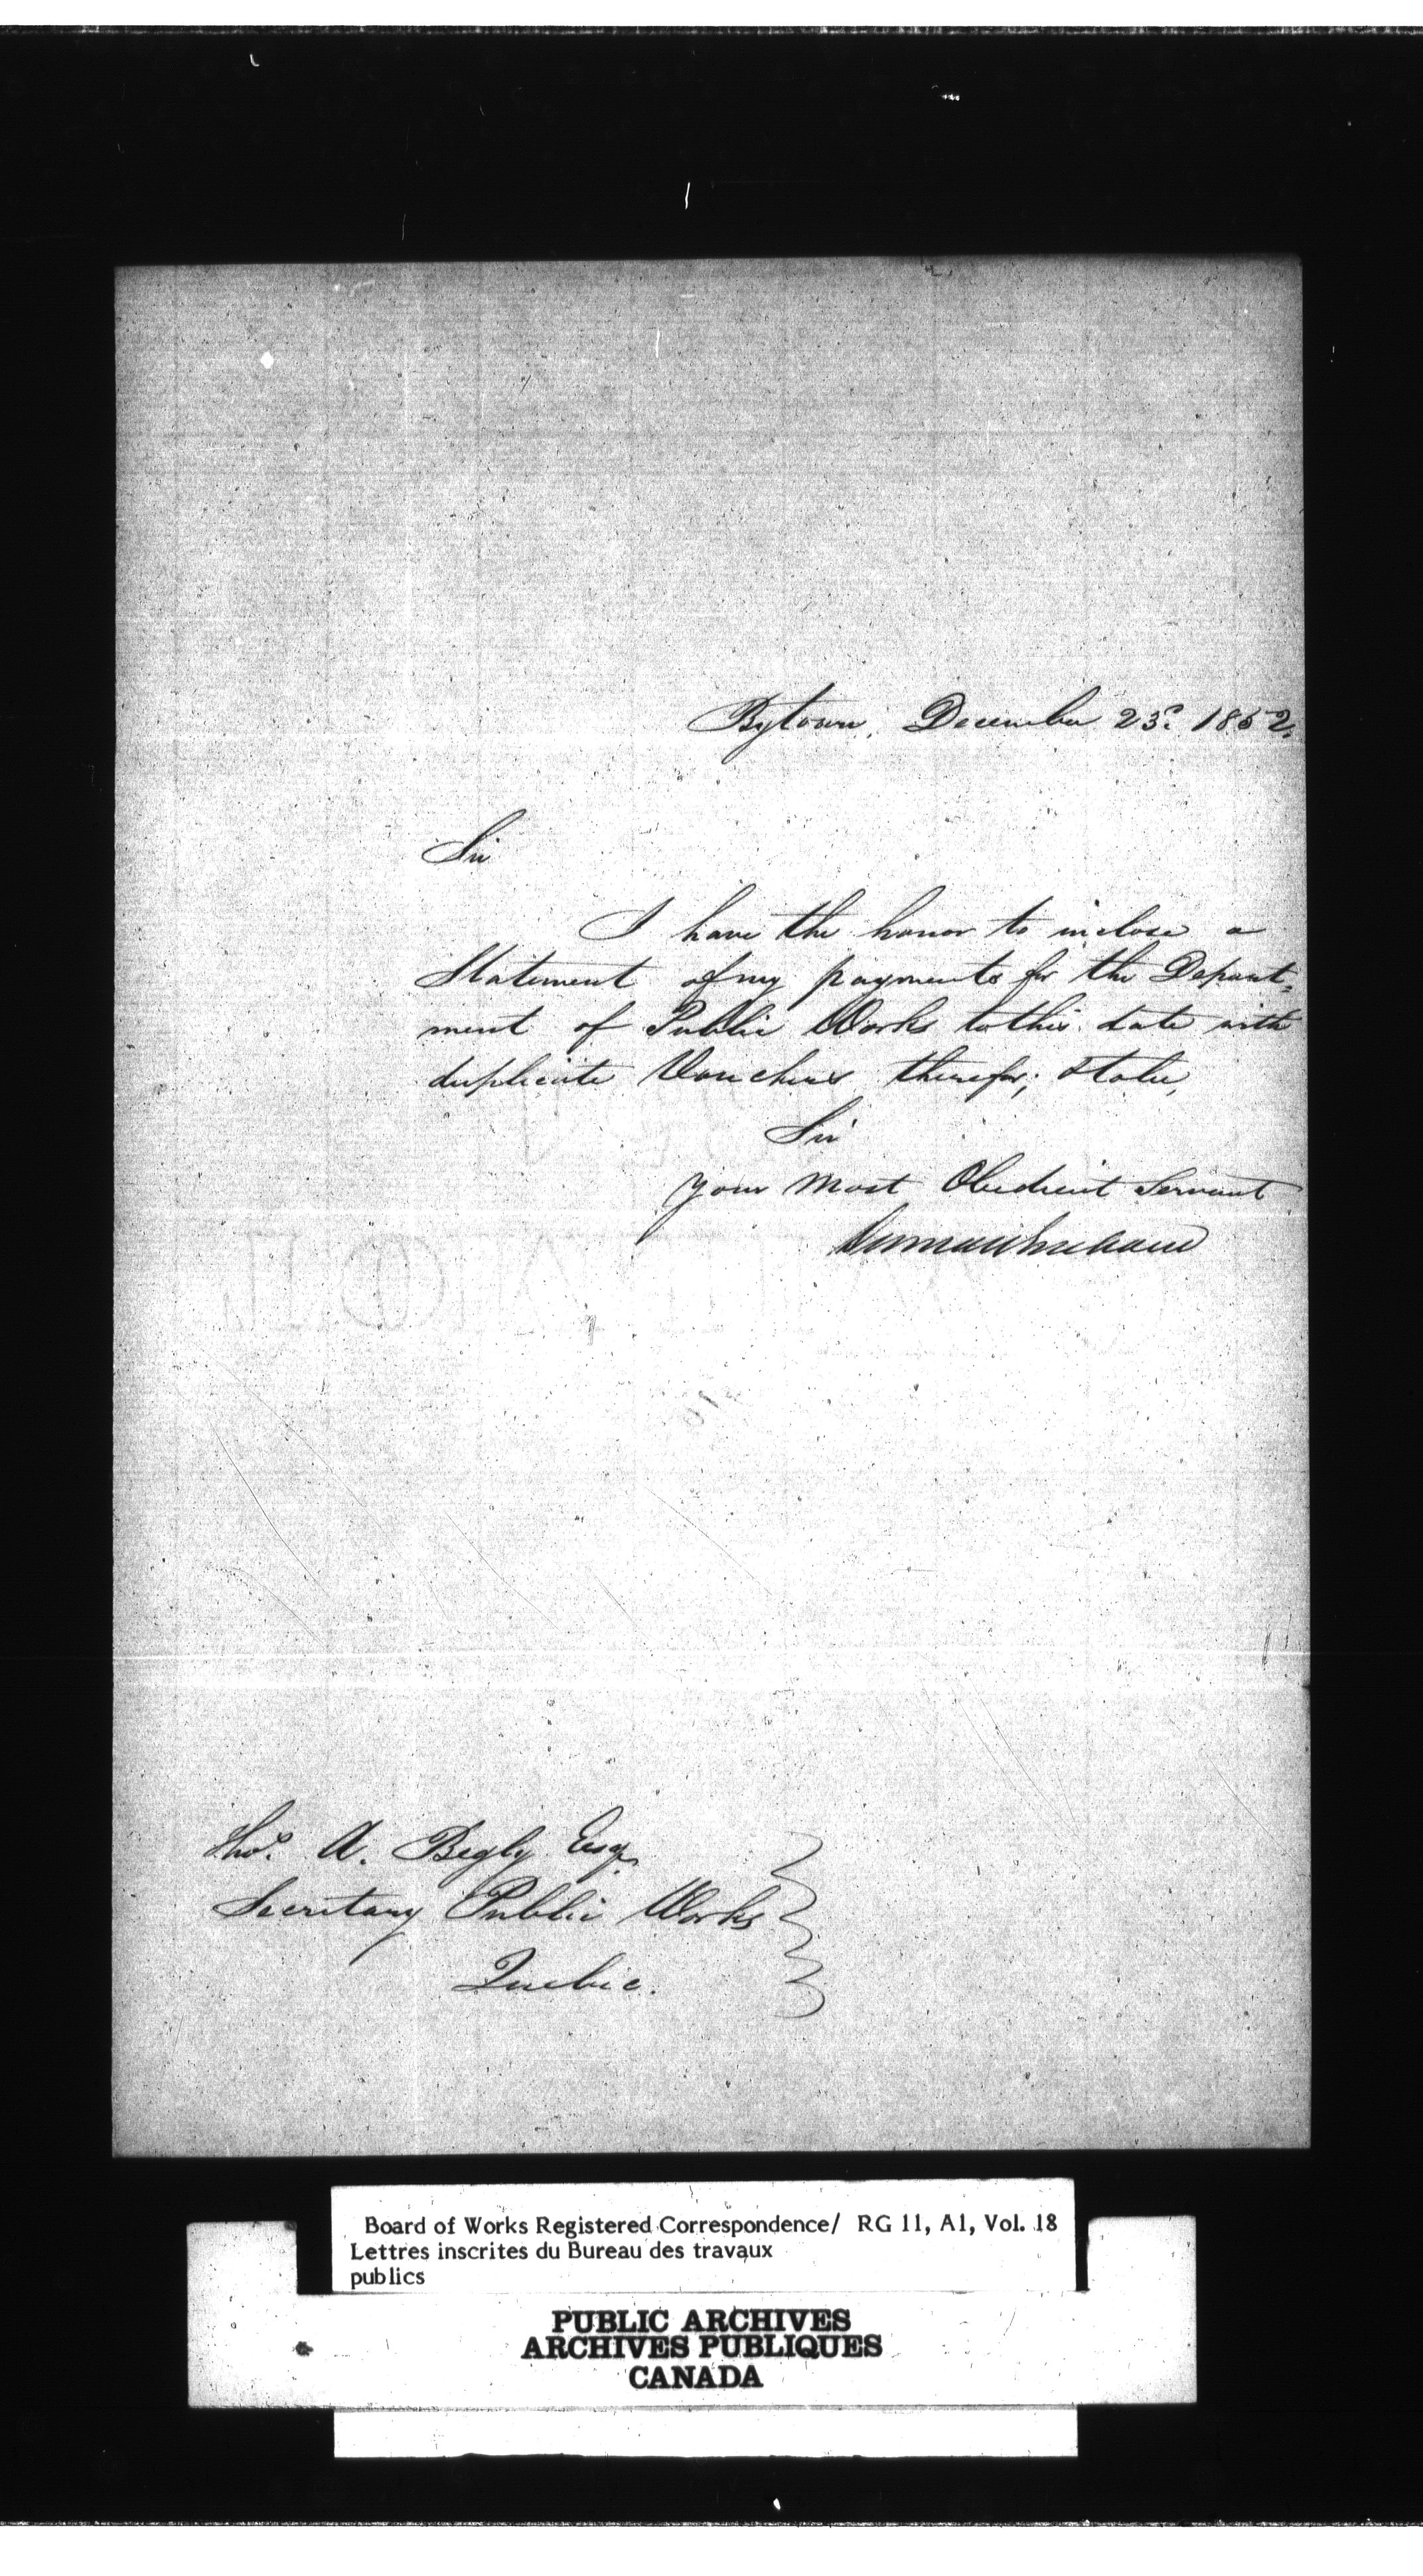 Bytown, December 23d. 1852.
Sir
I have the honor to inclose a
Statement of my payments for the Depart=
ment of Public Works to this date with
duplicate Vouchers therefor;
Sir
Your Most Obedient Servant
Thos. A. Begly Esqr.
Secretary Public Works
Quebec.
Board of Works Registered Correspondence/ RG 11, A1, Vol. 18
Lettres inscrites du Bureau des travaux
publics
PUBLIC ARCHIVES
ARCHIVES PUBLIQUES
CANADA